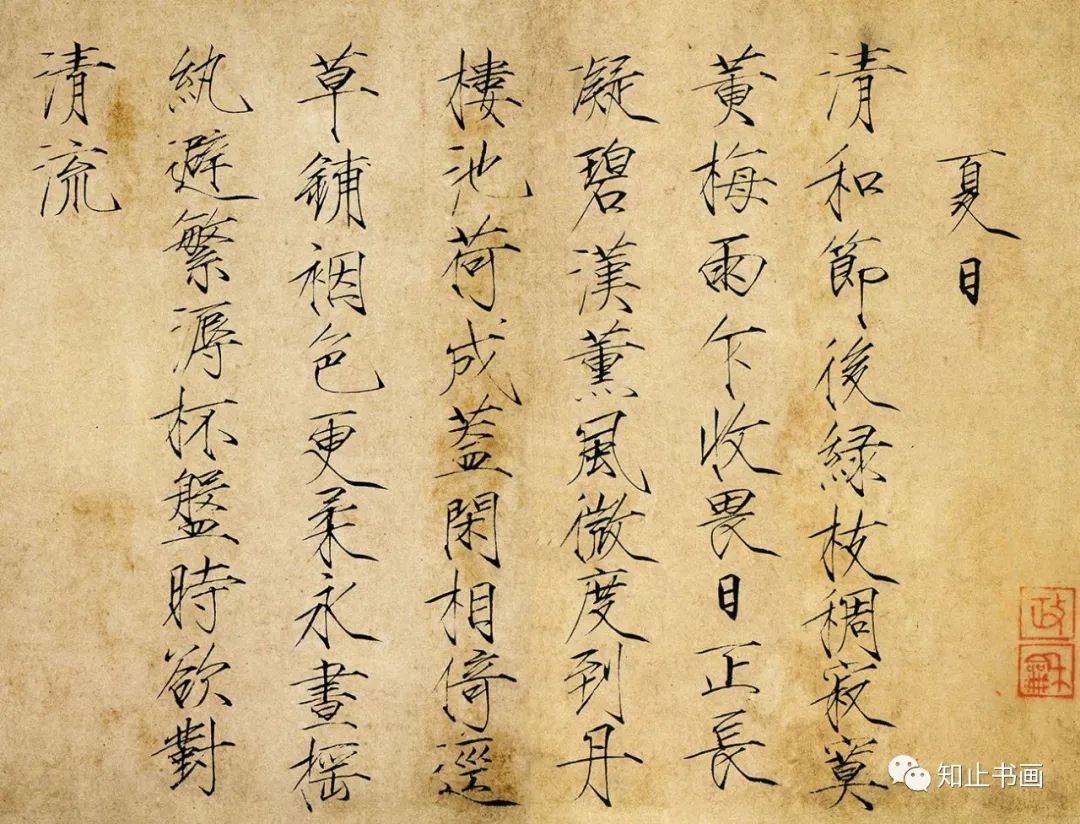 夏日
清和節後緑枝稠寂寞
黄梅雨乍收畏日正長
凝碧漢薰風微度到丹
樓池荷成蓋閑相倚逕
草鋪裀色更柔永晝搖
紈避繁溽杯盤時欲對
清流
政龢
知止书画